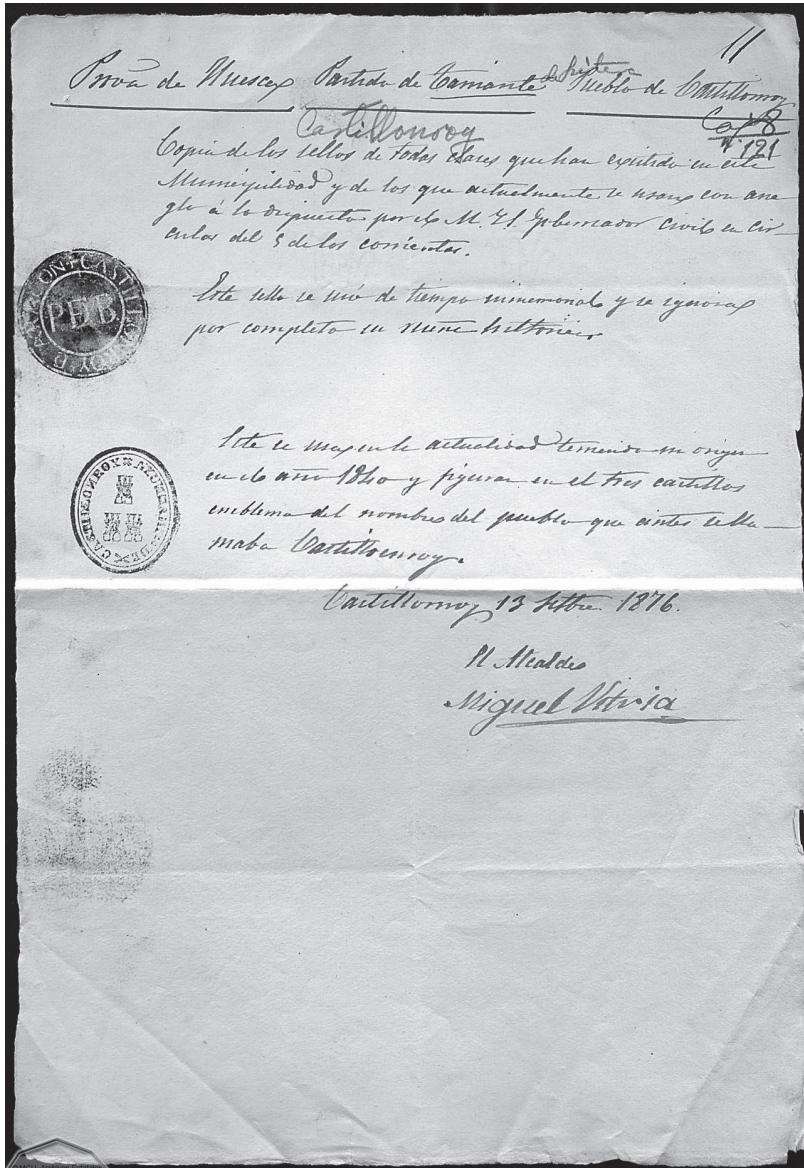 11
Prova de Huesca Partido de Tamarite de Litera Pueblo de Castillonroy
Castillonroy
Caj 8
n. 121
Copia de los sellos de todas clases que han existido en esta
Municipalidad y de los que actualmente se usan con arre
glo á lo dispuesto por el M. Y. S. Gobernador civil en cir-
cular del 5 de los corrientes.
CASTILLONROY
P.F.B.
Este sello se usó de tiempo inmemorial y se ignora
por completo su historia
AYUNTAMTO DE CASTILLONROY
Este se usa en la actualidad teniendo su origen
en el año 1840 y figuran en el tres castillos
emblema del nombre del pueblo que antes se lla-
maba Castillonroy.
Castillonroy 13 Setbre 1876.
El Alcalde
Miguel Vitria